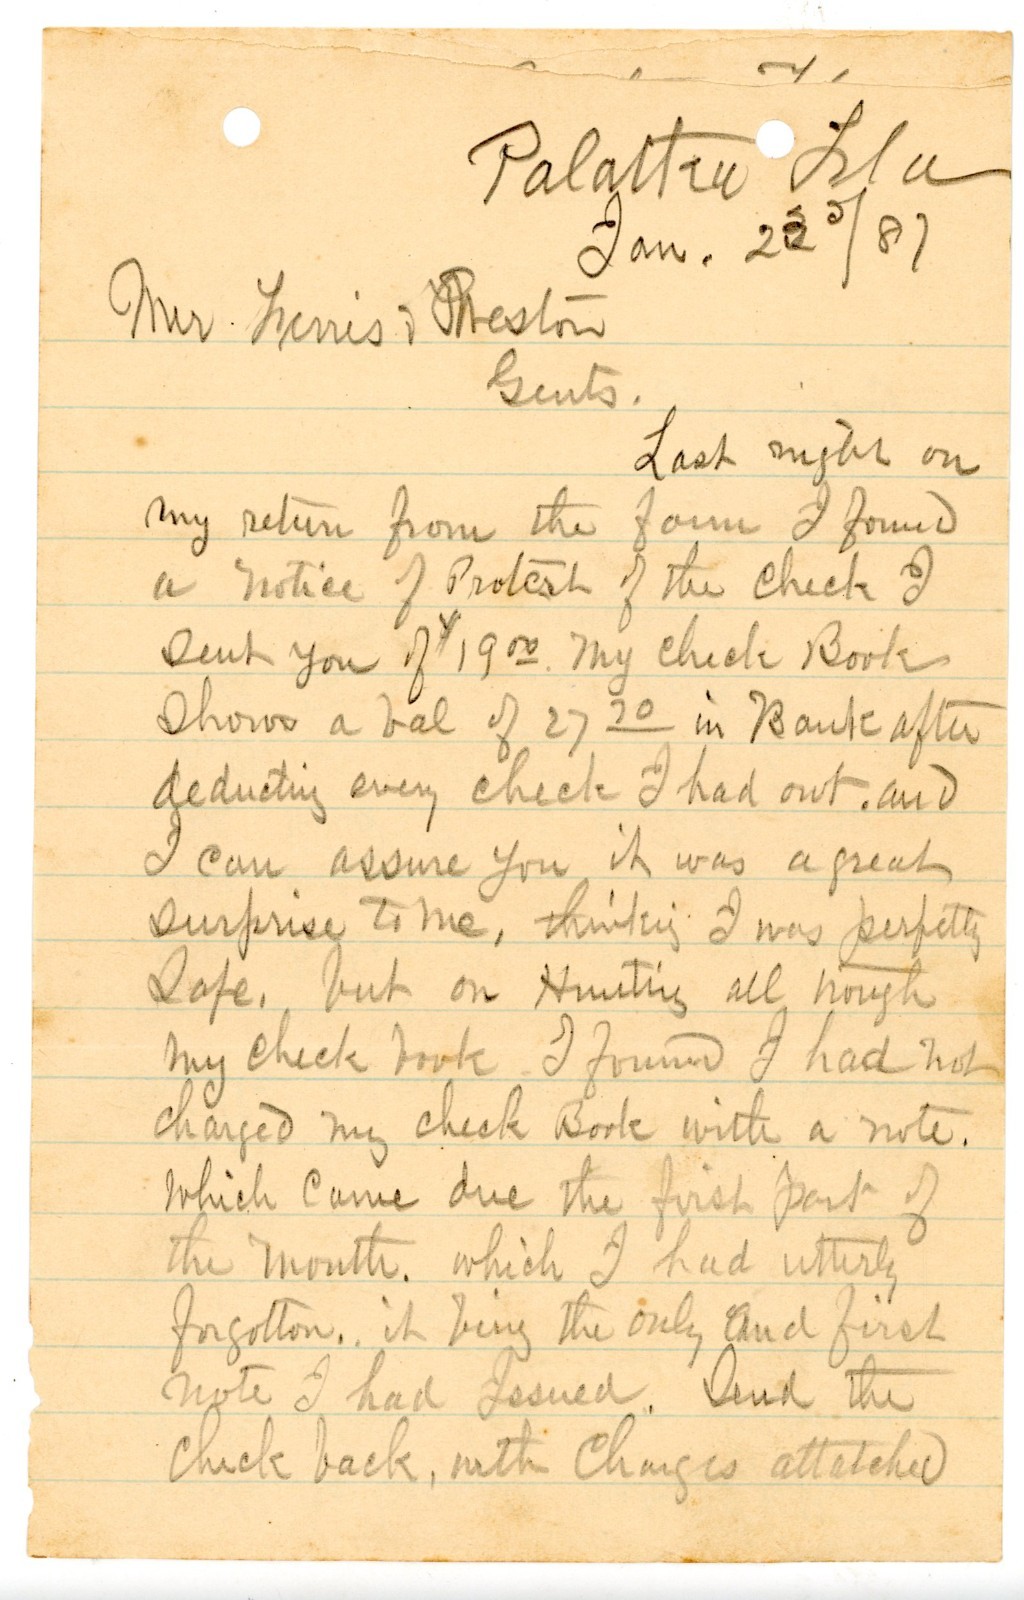 Palatka Fla
Jan. 23 5/87
Mer Ferris & Preston
Gents.
Last night on
my return from the farm I found
a notice of Protest of the Check I
sent you of $19 00. My check Book
shows a bal of 27 20 in Bank after
deducting every check I had out. and
I can assure you it was a great
surprise to me, thinking I was perfetty
Safe. but on Hunting all trough
my check book I found I had not
charged my check Book with a note.
which came due the first part of
the month. which I had utterly
forgotton. it bing the only and first
note I had Issued. Send the
Check back, with Charges attatched